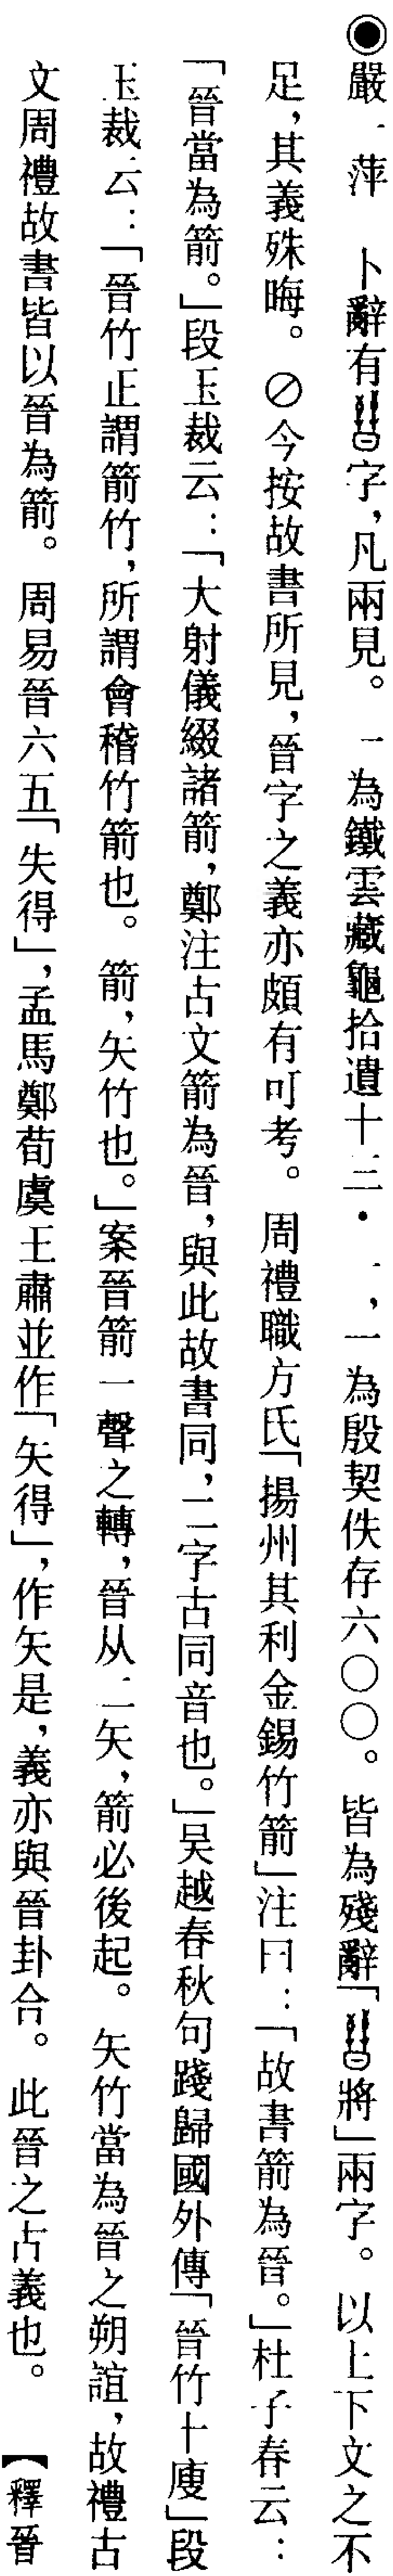 ◉嚴一萍　卜辭有字，凡兩見。一為鐵雲藏龜拾遺十三・一，一為殷契佚存六〇〇。皆為殘辭「將」兩字。以上下文之不
足，其義殊晦。⊘今按故書所見，晉字之義亦頗有可考。周禮職方氏「揚州其利金錫竹箭」注曰：「故書箭為晉。」杜子春云：
「晉當為箭。」段玉裁云：「大射儀綴諸箭，鄭注古文箭為晉，與此故書同，二字古同音也。」吳越春秋句踐歸國外傳「晉竹十廋」段
玉裁云：「晉竹正謂箭竹，所謂會稽竹箭也。箭，矢竹也。」案晉箭一聲之轉，晉从二矢，箭必後起。矢竹當為晉之朔誼，故禮古
文周禮故書皆以晉為箭。周易晉六五「失得」，孟馬鄭荀虞王肅並作「矢得」，作矢是，義亦與晉卦合。此晉之古義也。【釋晉